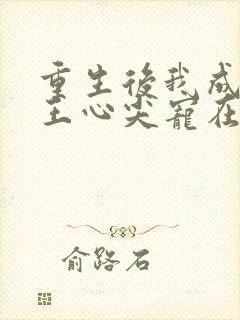 重生後我成
王心尖寵在
俞路石